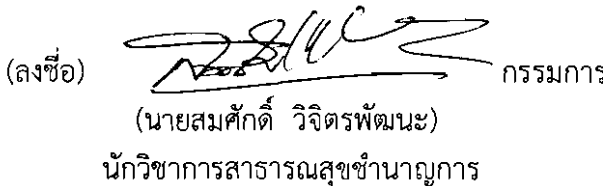 (ลงชื่อ) กรรมการ
(นายสมศักดิ์ วิจิตรพัฒนะ)
นักวิชาการสาธารณสุขชำนาญการ